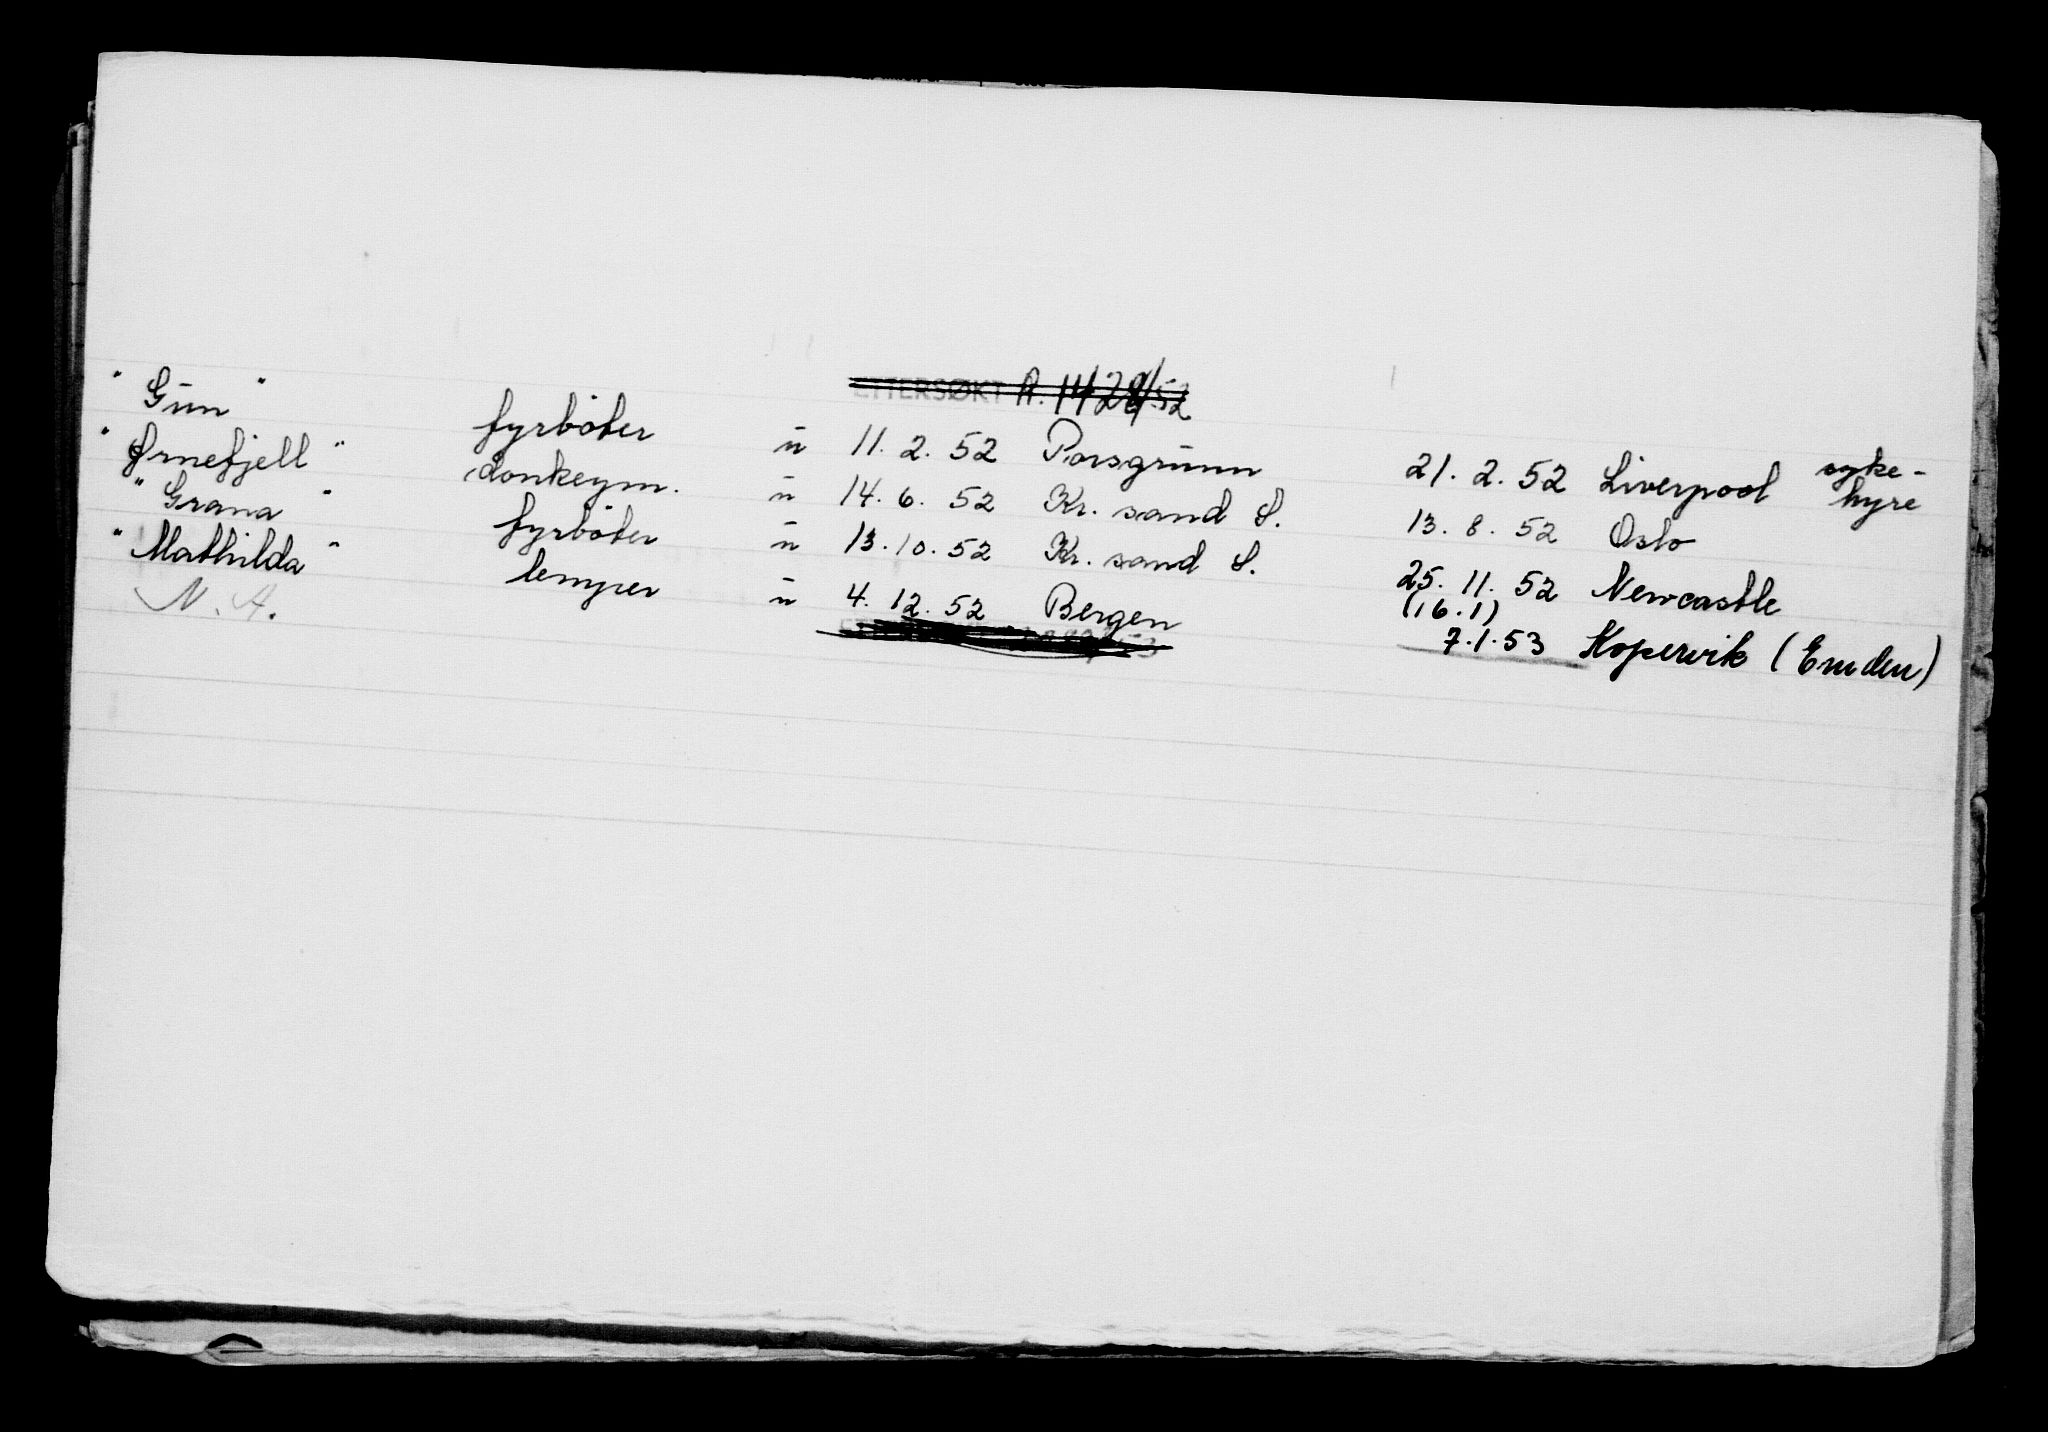 ETTERSØKT A. 1428/52
"Gun" fyrböter ü 11. 2. 52 Porsgrunn 21. 2. 52 Liverpool syke-hyre
"Ørnefjell" donkeym. ü 14. 6. 52 Kr. sand S. 13. 8. 52 Oslo
"Grana" fyrböter ü 13. 10. 52 Kr. sand S. 25. 11. 52 Newcastle
"Mathilda" lemper ü 4. 12. 52 Bergen (16.1) 7.1.53 Kopervik (Emden)
N. A.